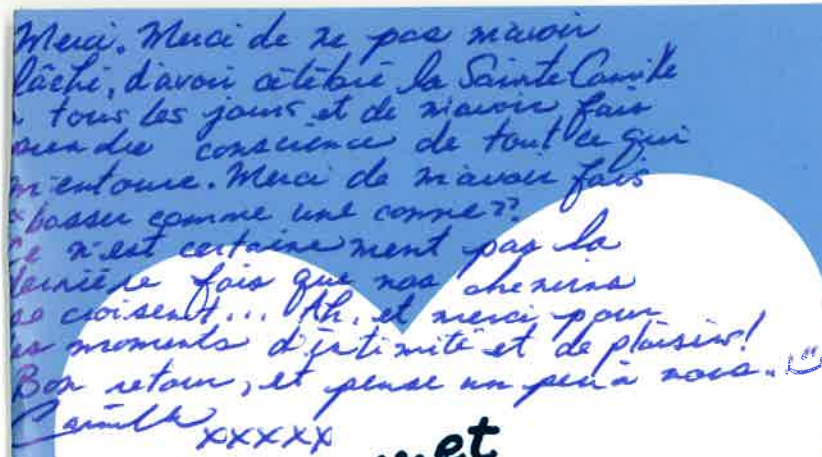 Merci. Merci de ne pas m'avoir
lâché, d'avoir célébré la Sainte Camille
tous les jours et de m'avoir fais
prendre conscience de tout ce qui
m'entoure. Merci de m'avoir fais
bosser comme une conne??
Ce n'est certainement pas la
dernière fois que nos chemins
se croisent... Ah, et merci pour
les moments d'intimité et de plaisirs!
Bon retour, et pense un peu à nous..
Camille
xxxxx